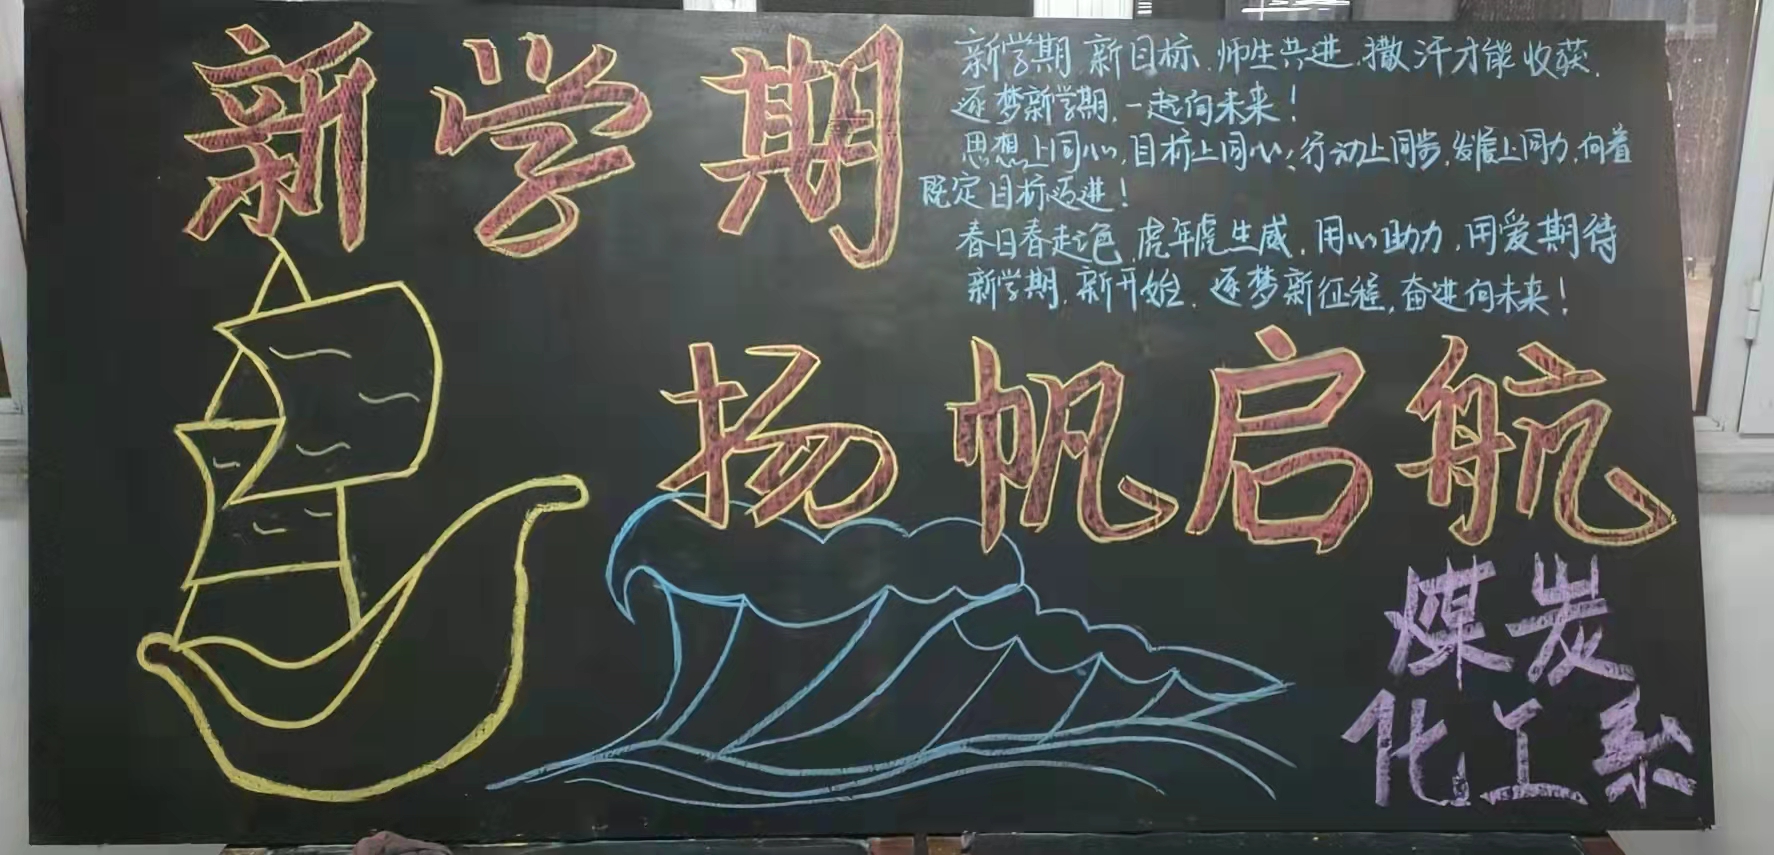 新学期
新学期,新目标,师生共进,撒汗才能收获,
逐梦新学期,一起向未来!
思想上同心,目标上同心;行动上同步,发展上同力,向着
既定目标迈进!
春日春起色,虎年虎生威,用心助力,用爱期待
新学期,新开始,逐梦新征程,奋进向未来!
扬帆启航
煤炭
化工系